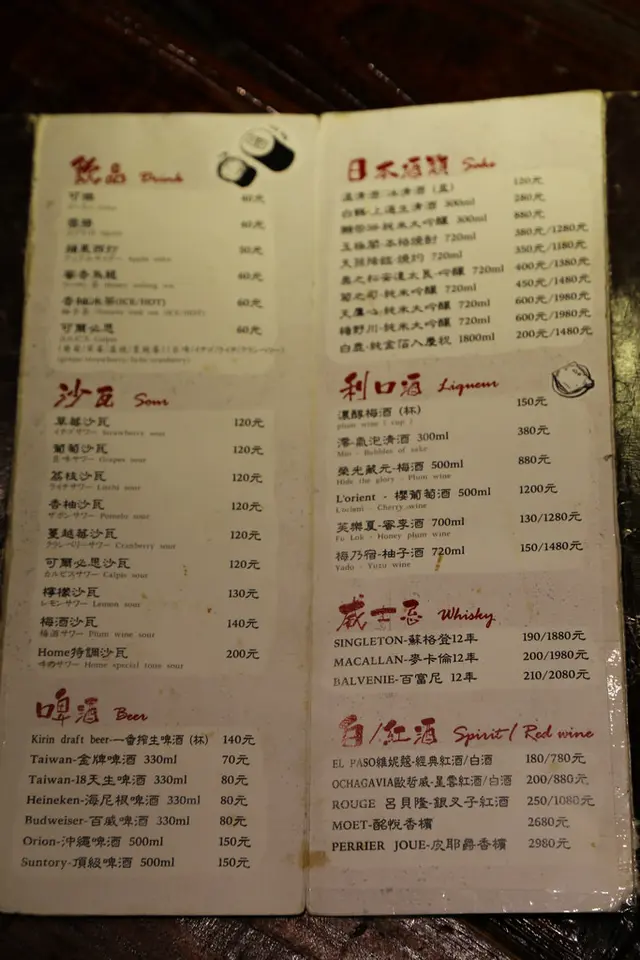 飲品 Drink
可樂 40元
雪碧 40元
蘋果西打 50元
蜜香烏龍 40元
香柚冰茶(ICE/HOT) 60元
可爾必思 60元
沙瓦 Sour
草莓沙瓦 120元
イチゴサワー Strawberry sour
葡萄沙瓦 120元
Grapes sour
荔枝沙瓦 120元
ライチサワー Litchi sour
香柚沙瓦 120元
ザボンサワー Pomelo sour
蔓越莓沙瓦 120元
クランベリーサワー Cranberry sour
可爾必思沙瓦 120元
カルピスサワー Calpis sour
檸檬沙瓦 130元
レモンサワー Lemon sour
梅酒沙瓦 140元
梅酒サワー Plum wine sour
Home特調沙瓦 200元
Home special tone sour
啤酒 Beer
Kirin draft beer-一番搾生啤酒 (杯) 140元
Taiwan-金牌啤酒 330ml 70元
Taiwan-18天生啤酒 330ml 80元
Heineken-海尼根啤酒 330ml 80元
Budweiser-百威啤酒 330ml 80元
Orion-沖繩啤酒 500ml 150元
Suntory-頂級啤酒 500ml 150元
日本酒類 Sake
溫清酒/冰清酒 (壺) 120元
白鶴-上選生清酒 300ml 280元
純米大吟釀 300ml 880元
玉極閣-本格燒酎 720ml 380元/1280元
720ml 350元/1180元
吟釀 720ml 400元/1380元
純米吟釀 720ml 450元/1480元
純米大吟釀 720ml 600元/1980元
純米大吟釀 720ml 600元/1980元
白鹿-純金箔入慶祝 1800ml 200元/1480元
利口酒 Liqueur
濃醇梅酒 (杯) 150元
plum wine ( cup )
澪-氣泡清酒 300ml 380元
Mio - Bubbles of sake
榮光藏元-梅酒 500ml 880元
Hide the glory - Plum wine
L'orient - 櫻葡萄酒 500ml 1200元
L'orient - Cherry wine
芙樂夏-蜜李酒 700ml 130/1280元
Fu Lok - Honey plum wine
梅乃宿-柚子酒 720ml 150/1480元
Yado - Yuzu wine
威士忌 Whisky
SINGLETON-蘇格登12年 190/1880元
MACALLAN-麥卡倫12年 200/1980元
BALVENIE-百富尼 12年 210/2080元
白/紅酒 Spirit/ Red wine
EL PASO維妮蔻-經典紅酒/白酒 180/780元
OCHAGAVIA歐哲威-星雲紅酒/白酒 200/880元
ROUGE 呂貝隆-銀叉子紅酒 250/1080元
MOET-酩悅香檳 2680元
PERRIER JOUE-皮耶爵香檳 2980元